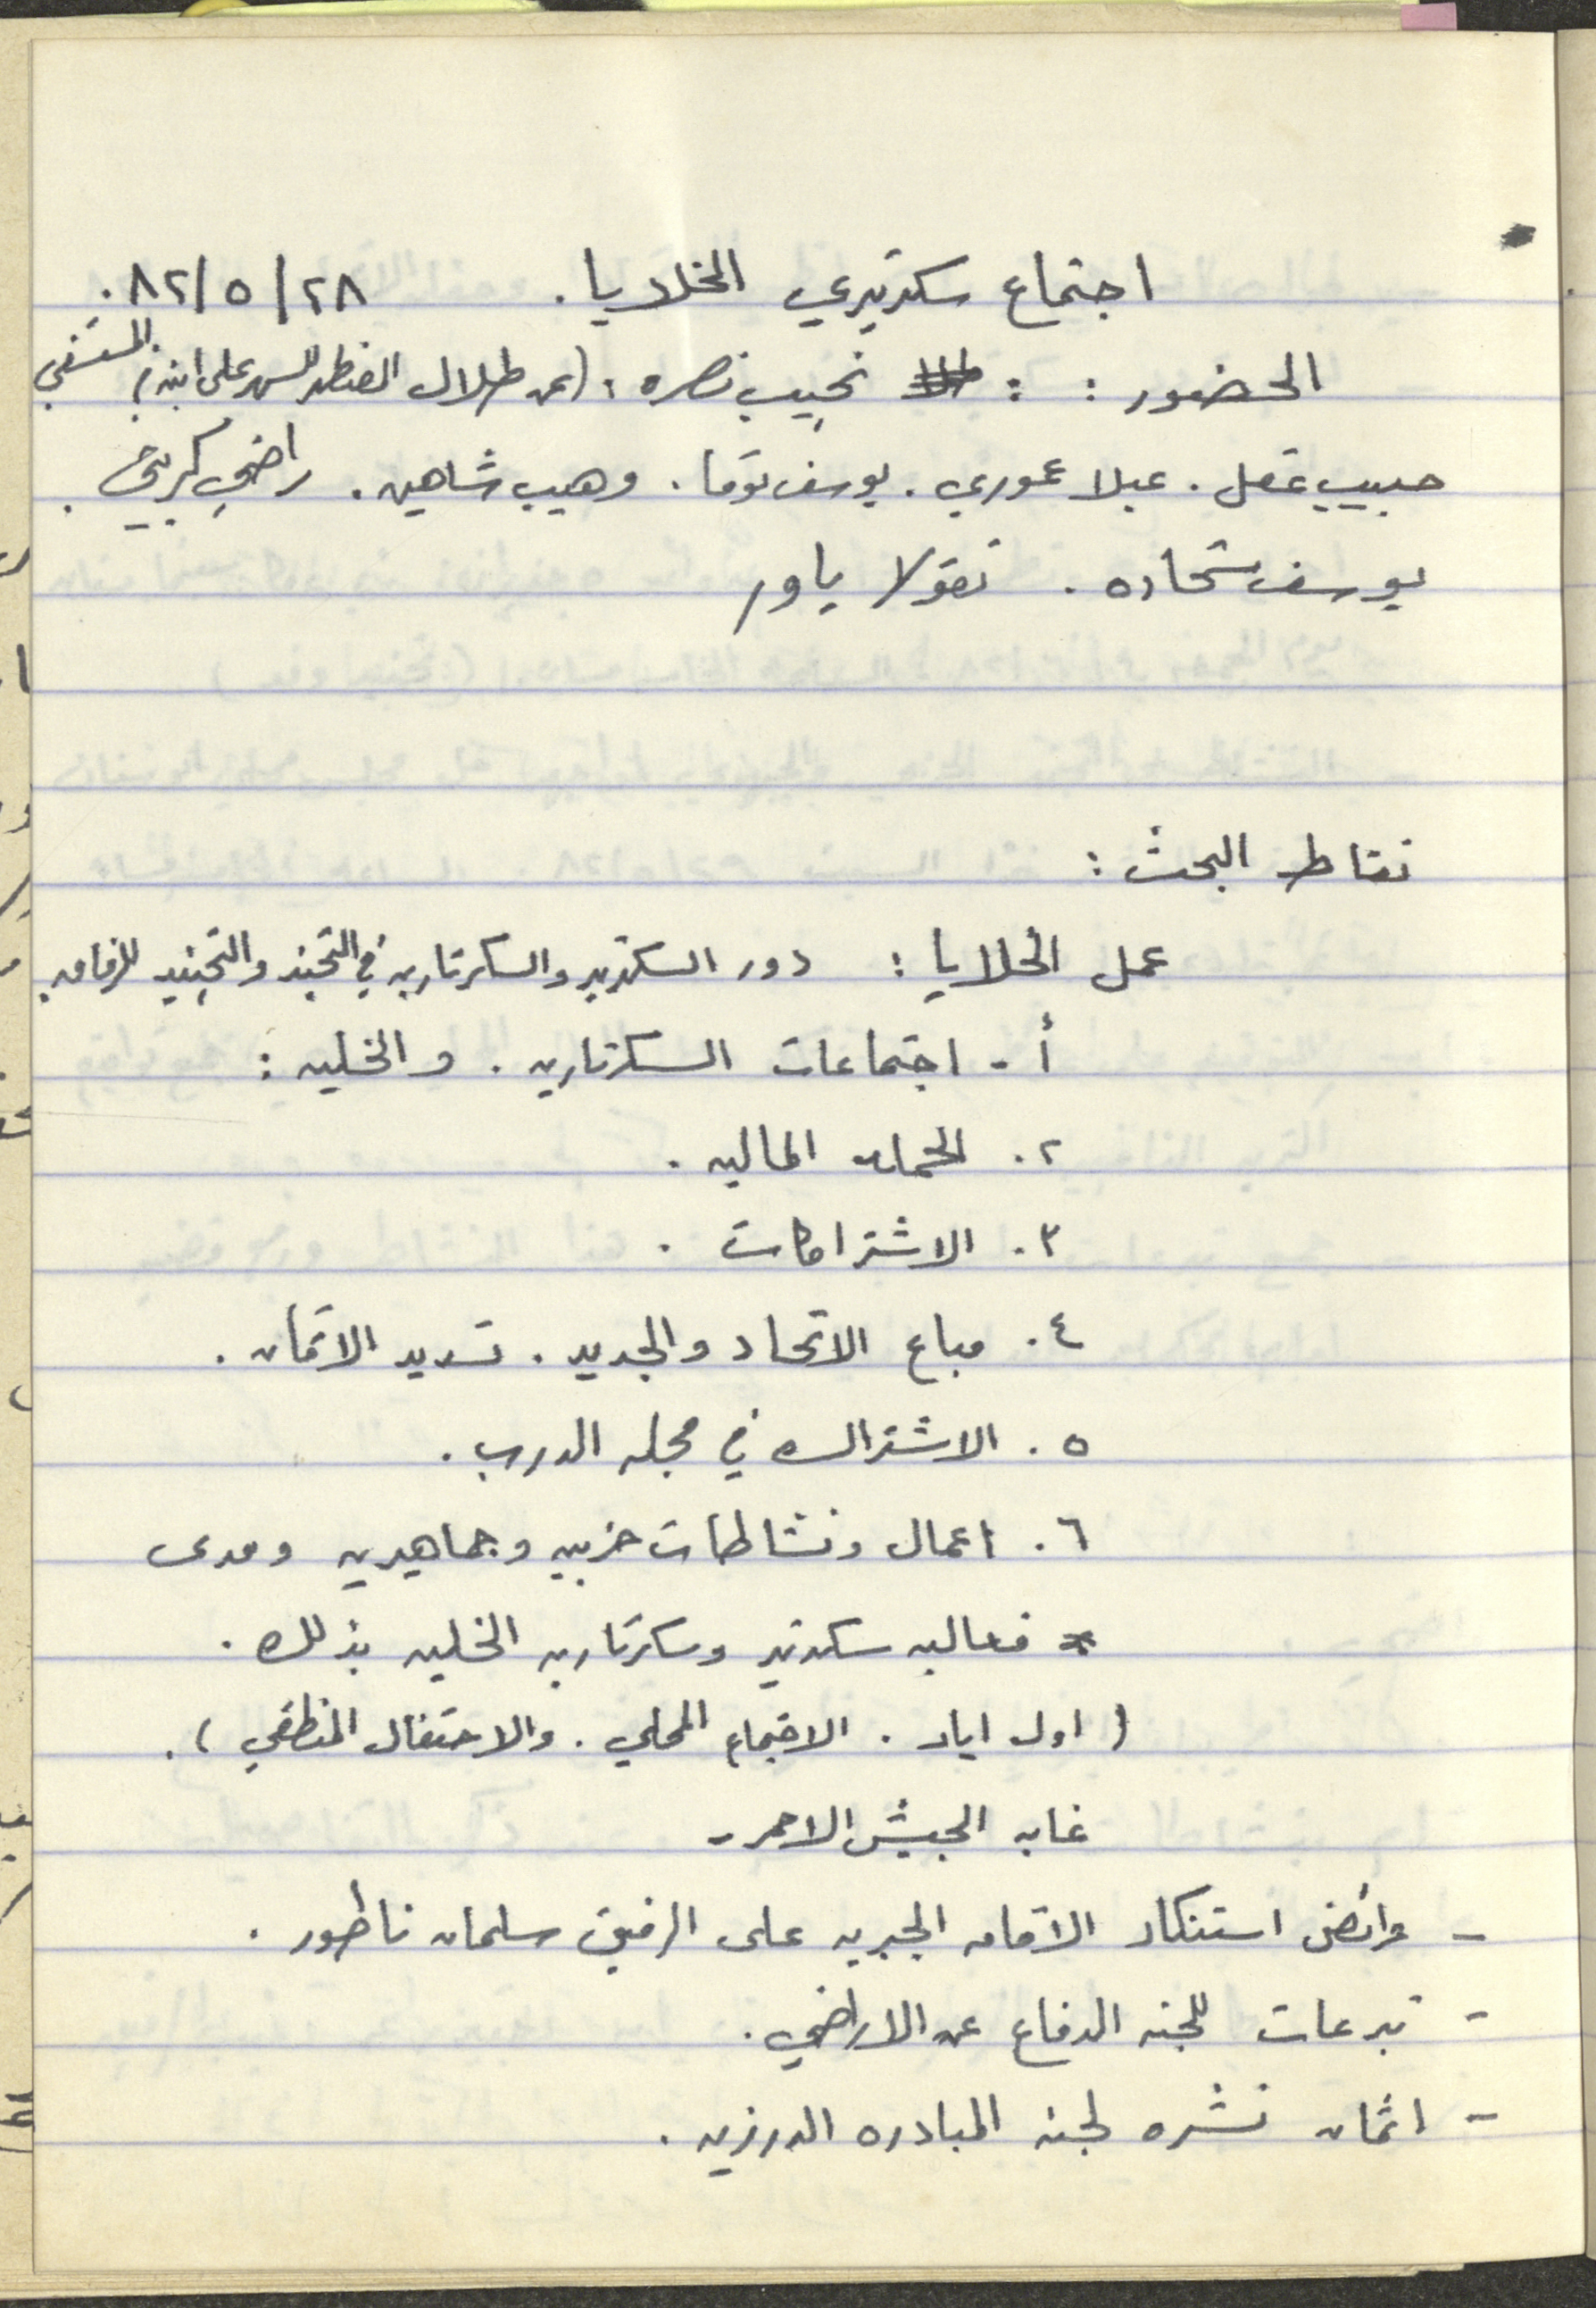 اجتماع سكرتيري الخلايا. ٢٨/٥/٨٢.
الحضور : : نجيب نصره : (عن طلال المضطر للسهر على ابنه في المستشفى
حبيب عقل. عبلا عموري. يوسف توما. وهيب شاهين. راضي كريني.
يوسف شحاده. نقولا ياور
نقاط البحث :
عمل الخلايا : دور السكرتير والسكرتاريه في التجند والتجنيد للرفاق.
أ - اجتماعات السكرتاريه. والخليه :
٢. الحملة الماليه.
٣. الاشتراكات.
٤. مباع الاتحاد والجديد. تسديد الاثمان.
٥. الاشتراك في مجله الدرب.
٦. اعمال ونشاطات حزبيه وجماهيريه ومدى
فعاليه سكرتير وسكرتاريه الخليه بذلك.
(اول ايار. الاجتماع المحلي. والاحتفال المنطقي).
غابه الجيش الاحمر -
- عرائض استنكار الاقامه الجبريه على الرفيق سلمان ناطور.
- تبرعات للجنه الدفاع عن الاراضي.
- اثمان نشره لجنه المبادره الدرزيه.